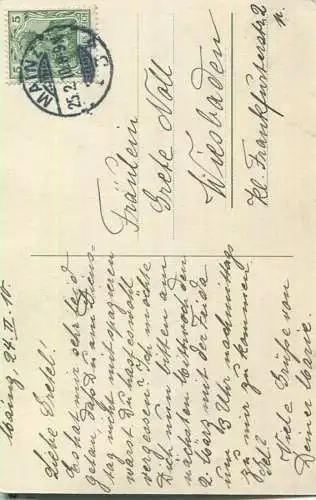 5
MAINZ
25.2.10. 8-9
Fräulein
Grete Noll
Wiesbaden
Kl. Frankfurterstr. 2
Mainz, 24. II. 10.
Liebe Gretel!
Es hat mir sehr leid
getan, daß du am Diens-
tag nicht mit spazieren
warst. Du hast es wohl
vergessen? Ich möchte
Dich nun bitten am
nächsten Mittwoch den
2. März mit der Frida
um 1/2 3 Uhr nachmittags
zu mir zu kommen.
Viele Grüße von
Deiner Marie.